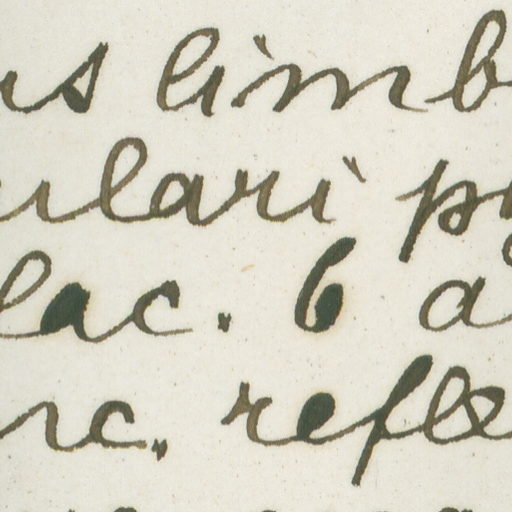 us limb
ulari p
lac. 6 a
nc. refle